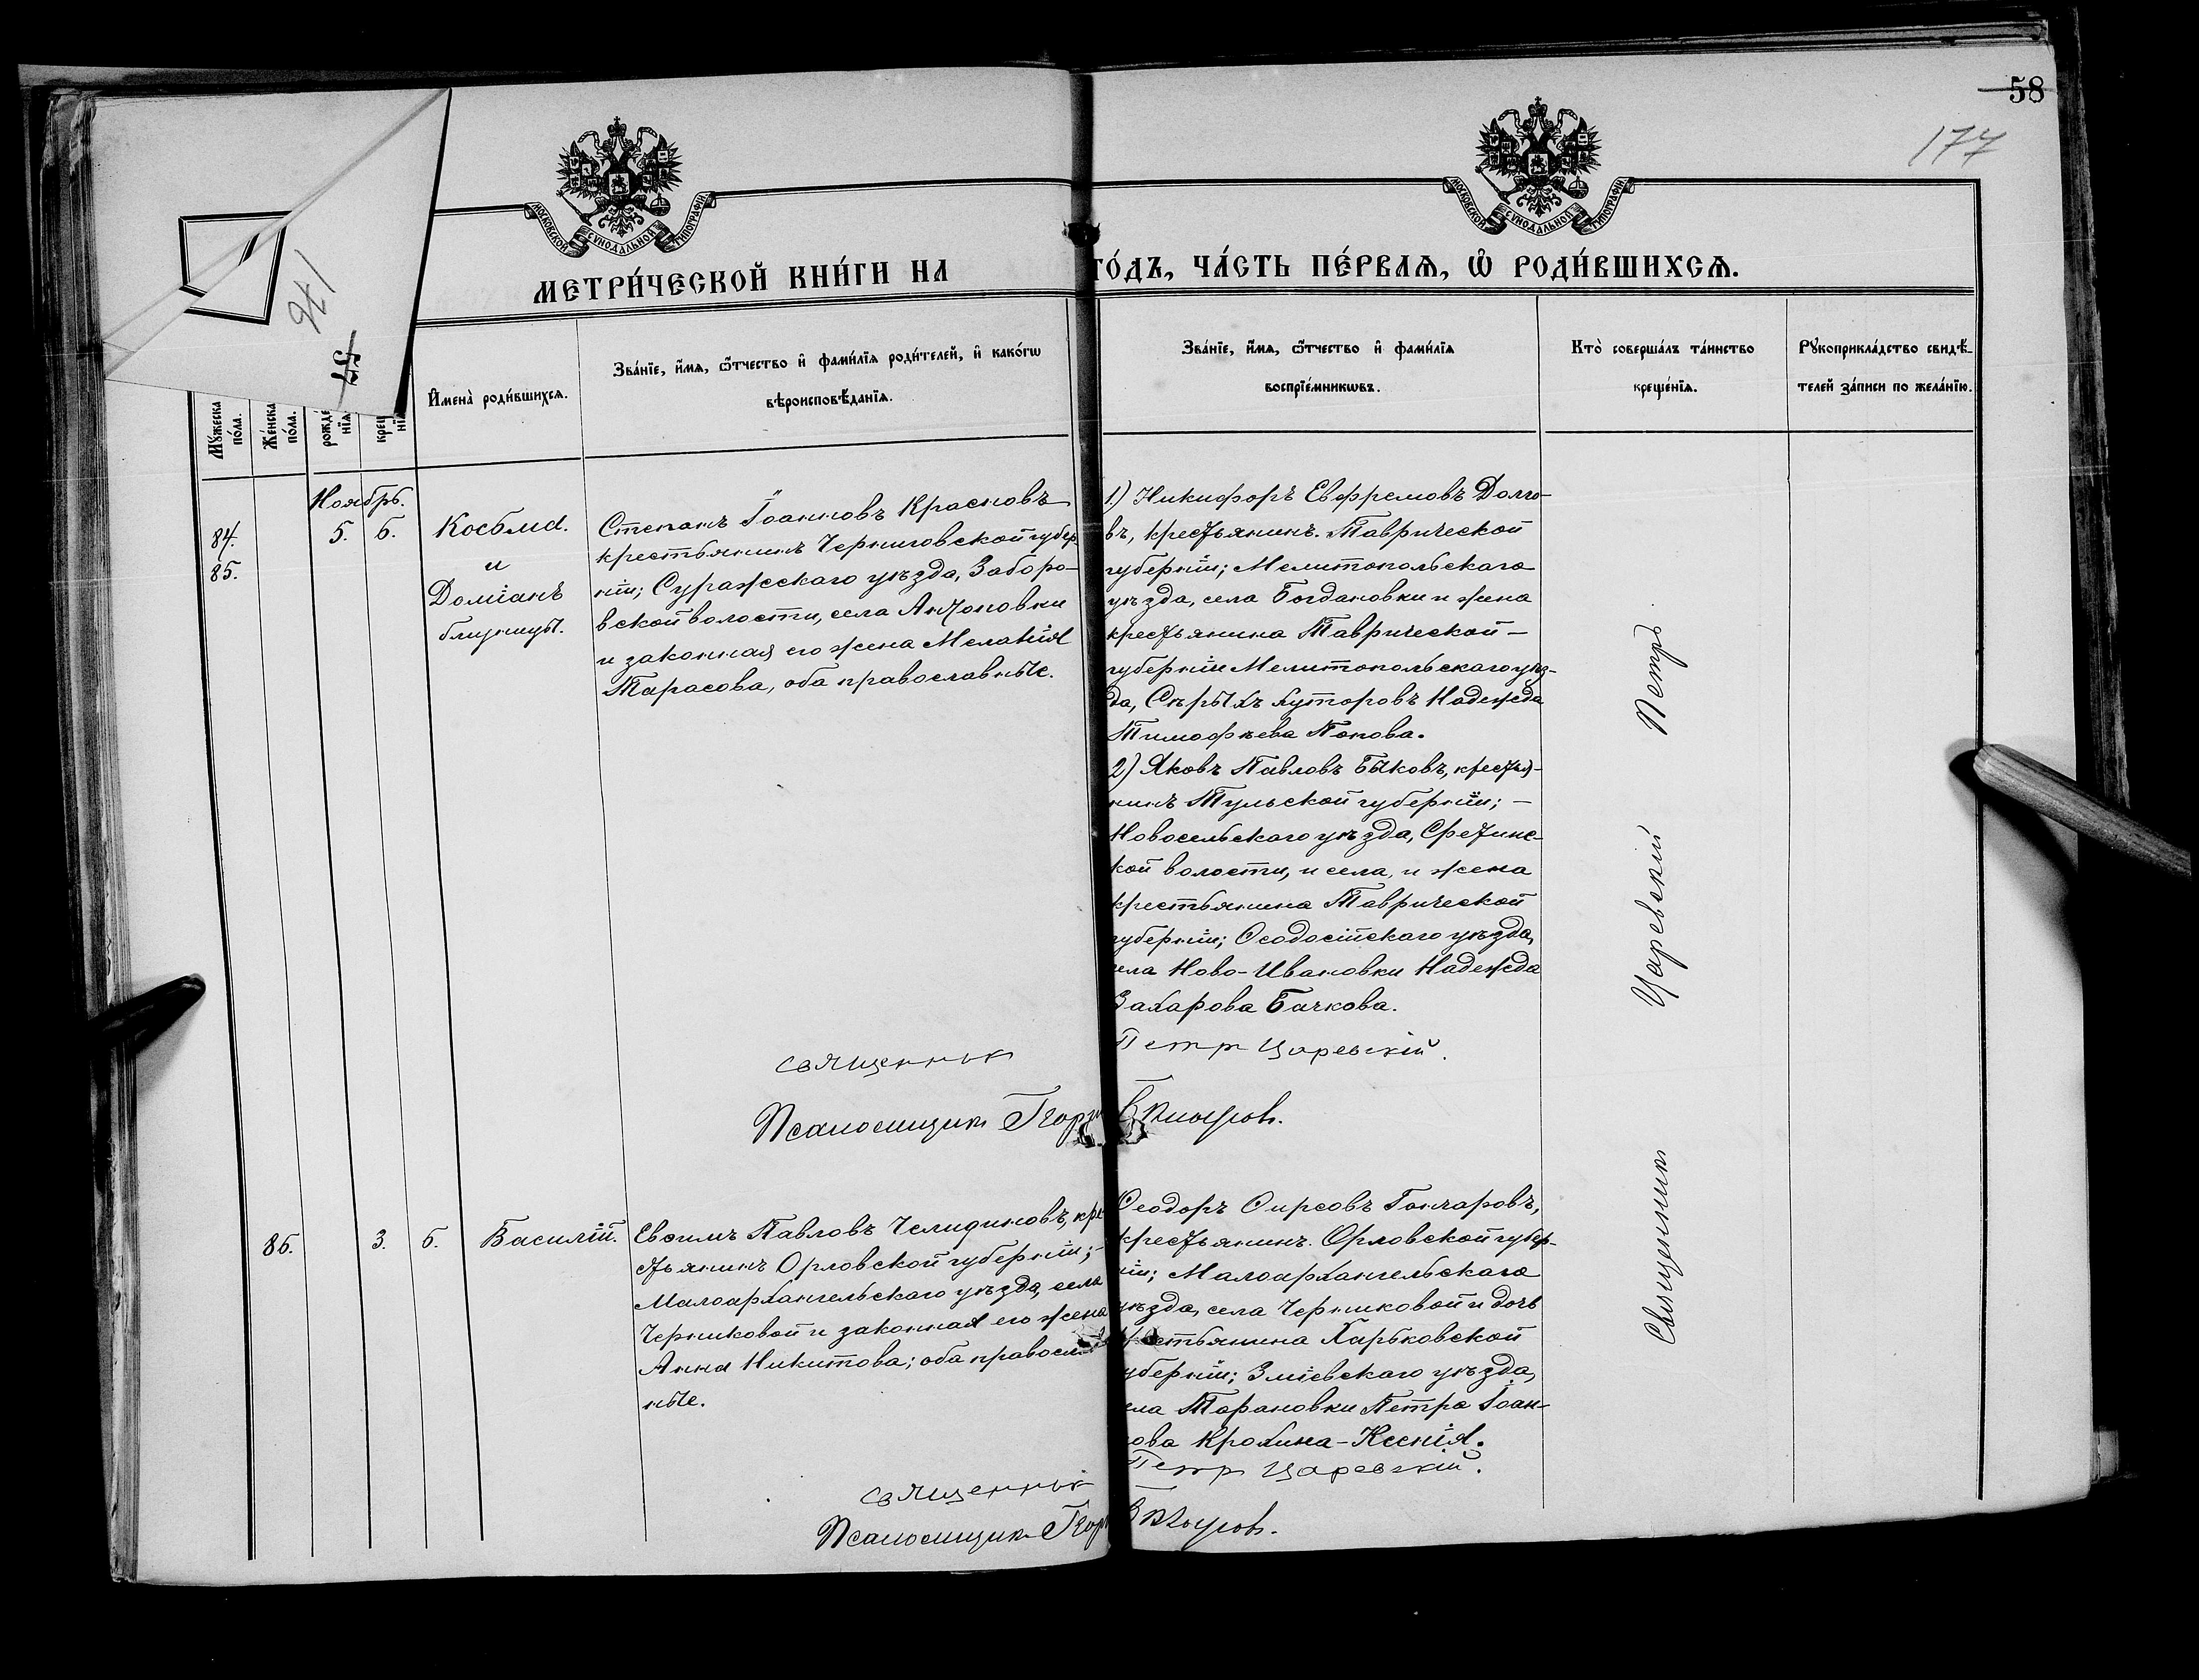 58
177
176
МОСКОВСКОЙ СѴНОДАЛЬНОЙ ТИПОГРАФІИ
МОСКОВСКОЙ СѴНОДАЛЬНОЙ ТИПОГРАФІИ
МЕТРИ́ЧЕСКОЙ КНИ́ГИ НА ГО́ДЪ, ЧА́СТЬ ПЕ́РВАѦ, Ѡ҆ РОДИ́ВШИХСѦ.
Мꙋ́жеска по́ла.
Же́нска по́ла.
рожде́нїѧ
крещ
И҆мена̀ роди́вшихсѧ.
Зва́нїе, и҆́мѧ, ѻ҆́тчество и҆ фами́лїѧ роди́телей, и҆ како́гѡ
вѣроисповѣ́данїѧ.
Зва́нїе, и҆́мѧ, ѻ҆́тчество и҆ фами́лїѧ
воспрїе́мникѡвъ.
Кто̀ соверша́лъ та́инство
креще́нїѧ.
Рꙋкоприкла́дство свидѣ́-
телей за́писи по жела́нїю.
Ноябрь.
84.
85.
5. 6.
Косьма.
и
Доміанъ
близнецы.
Степанъ Іоанновъ Красновъ
крестьянинъ Черниговской губер-
ніи; Суражскаго уѣзда, Заборо-
вской волости, села Антоновки
и законная его жена Меланія
Тарасова, оба православные.
1.) Никифоръ Евфремовъ Долго-
въ, крестьянинъ. Таврической
губерніи; Мелитопольскаго
уѣзда, села Богдановки и жена
крестьянина Таврической -
губерніи Мелитопольскаго уѣз-
да, Сѣрыхъ хуторовъ Надежда
Тимофѣева Попова.
2) Яковъ Павловъ Быковъ, крестья-
нинъ Тульской губерніи; -
Новосельскаго уѣзда,
кой волости, и села, и жена
крестьянина Таврической
губерніи; Ѳеодосійскаго уѣзда,
села Ново-Ивановки Надежда
Захарова Бачкова.
священник Петр Царевскій.
Псаломщик Георгій
86. 3. 6. Василій.
Евѳимъ Павловъ Челидиновъ, кре
стьянинъ Орловской губерніи; -
Малоархангельскаго уѣзда, села
Черниковой и законная его жена
Анна Никитова; оба православ
ные.
Ѳеодоръ Ѳирсовъ Гончаровъ,
крестьянинъ. Орловской губер-
ніи; Малоархангельскаго
уѣзда, села Черниковой и дочь
крестьянина Харьковской
губерніи; Зміевскаго уѣзда,
села Тарановки Петра Іоан-
нова Крохина - Ксенія.
священник Петр Царевскій.
Псаломщик Георгій
Священник Царевскій Петръ.